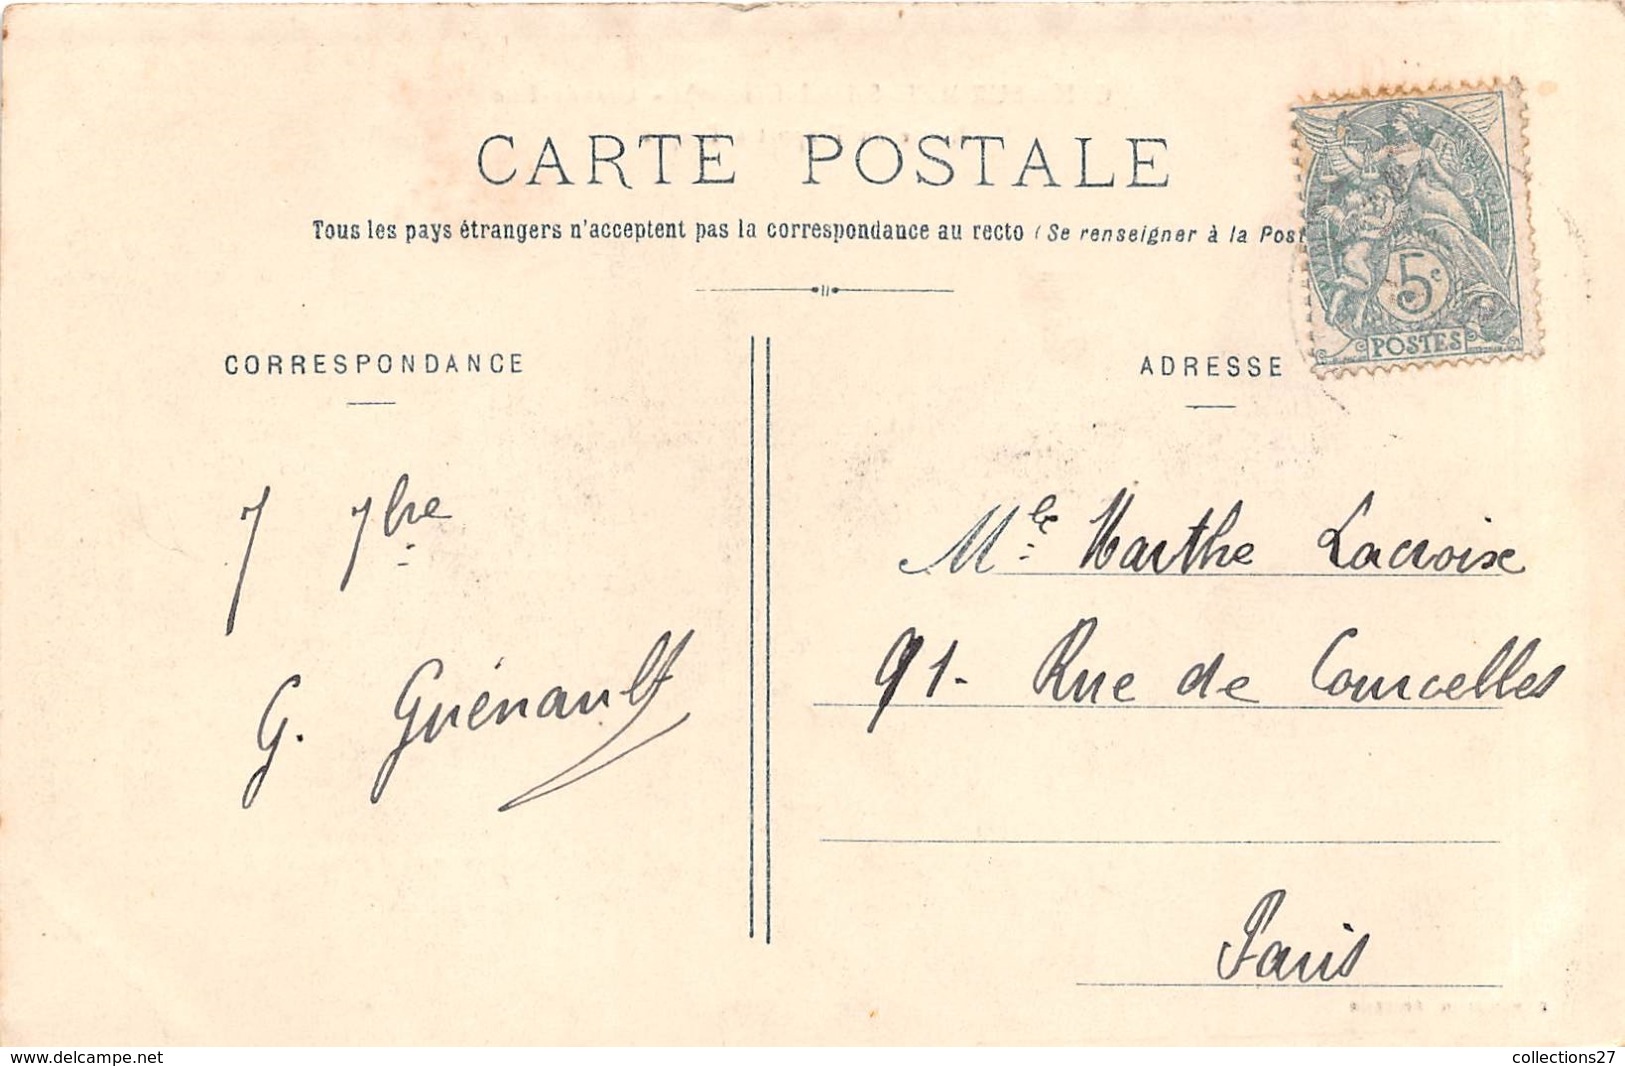 CARTE POSTALE
Tous les pays étrangers n'acceptent pas la correspondance au recto (Se renseigner à la Post
5c
POSTES
CORRESPONDANCE
ADRESSE
7 7bre
G. Guénault
Mlle Marthe Lacroix
91- Rue de Courcelles
Paris
www.delcampe.net
collections27